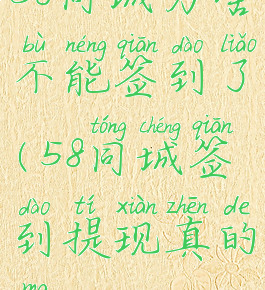 58同城为啥
bù néng qiān dào liǎo
不能签到了
tóng chéng qiān
(58同城签
dào tí xiàn zhēn de
到提现真的
ma